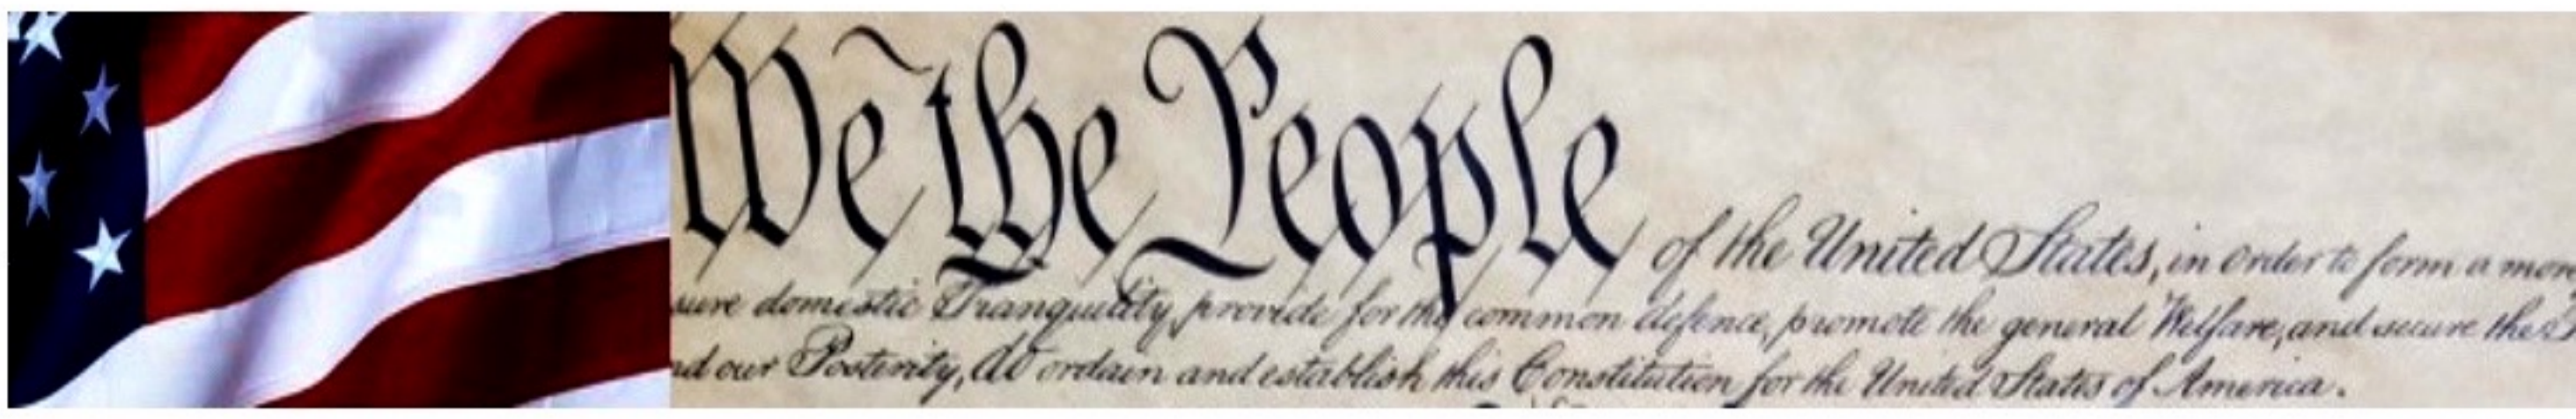 We the People of the United States, in Order to form a mor
sure domestic Tranquility, provide for the common defence, promote the general Welfare, and secure the
nd our Posterity, do ordain and establish this Constitution for the United States of America.